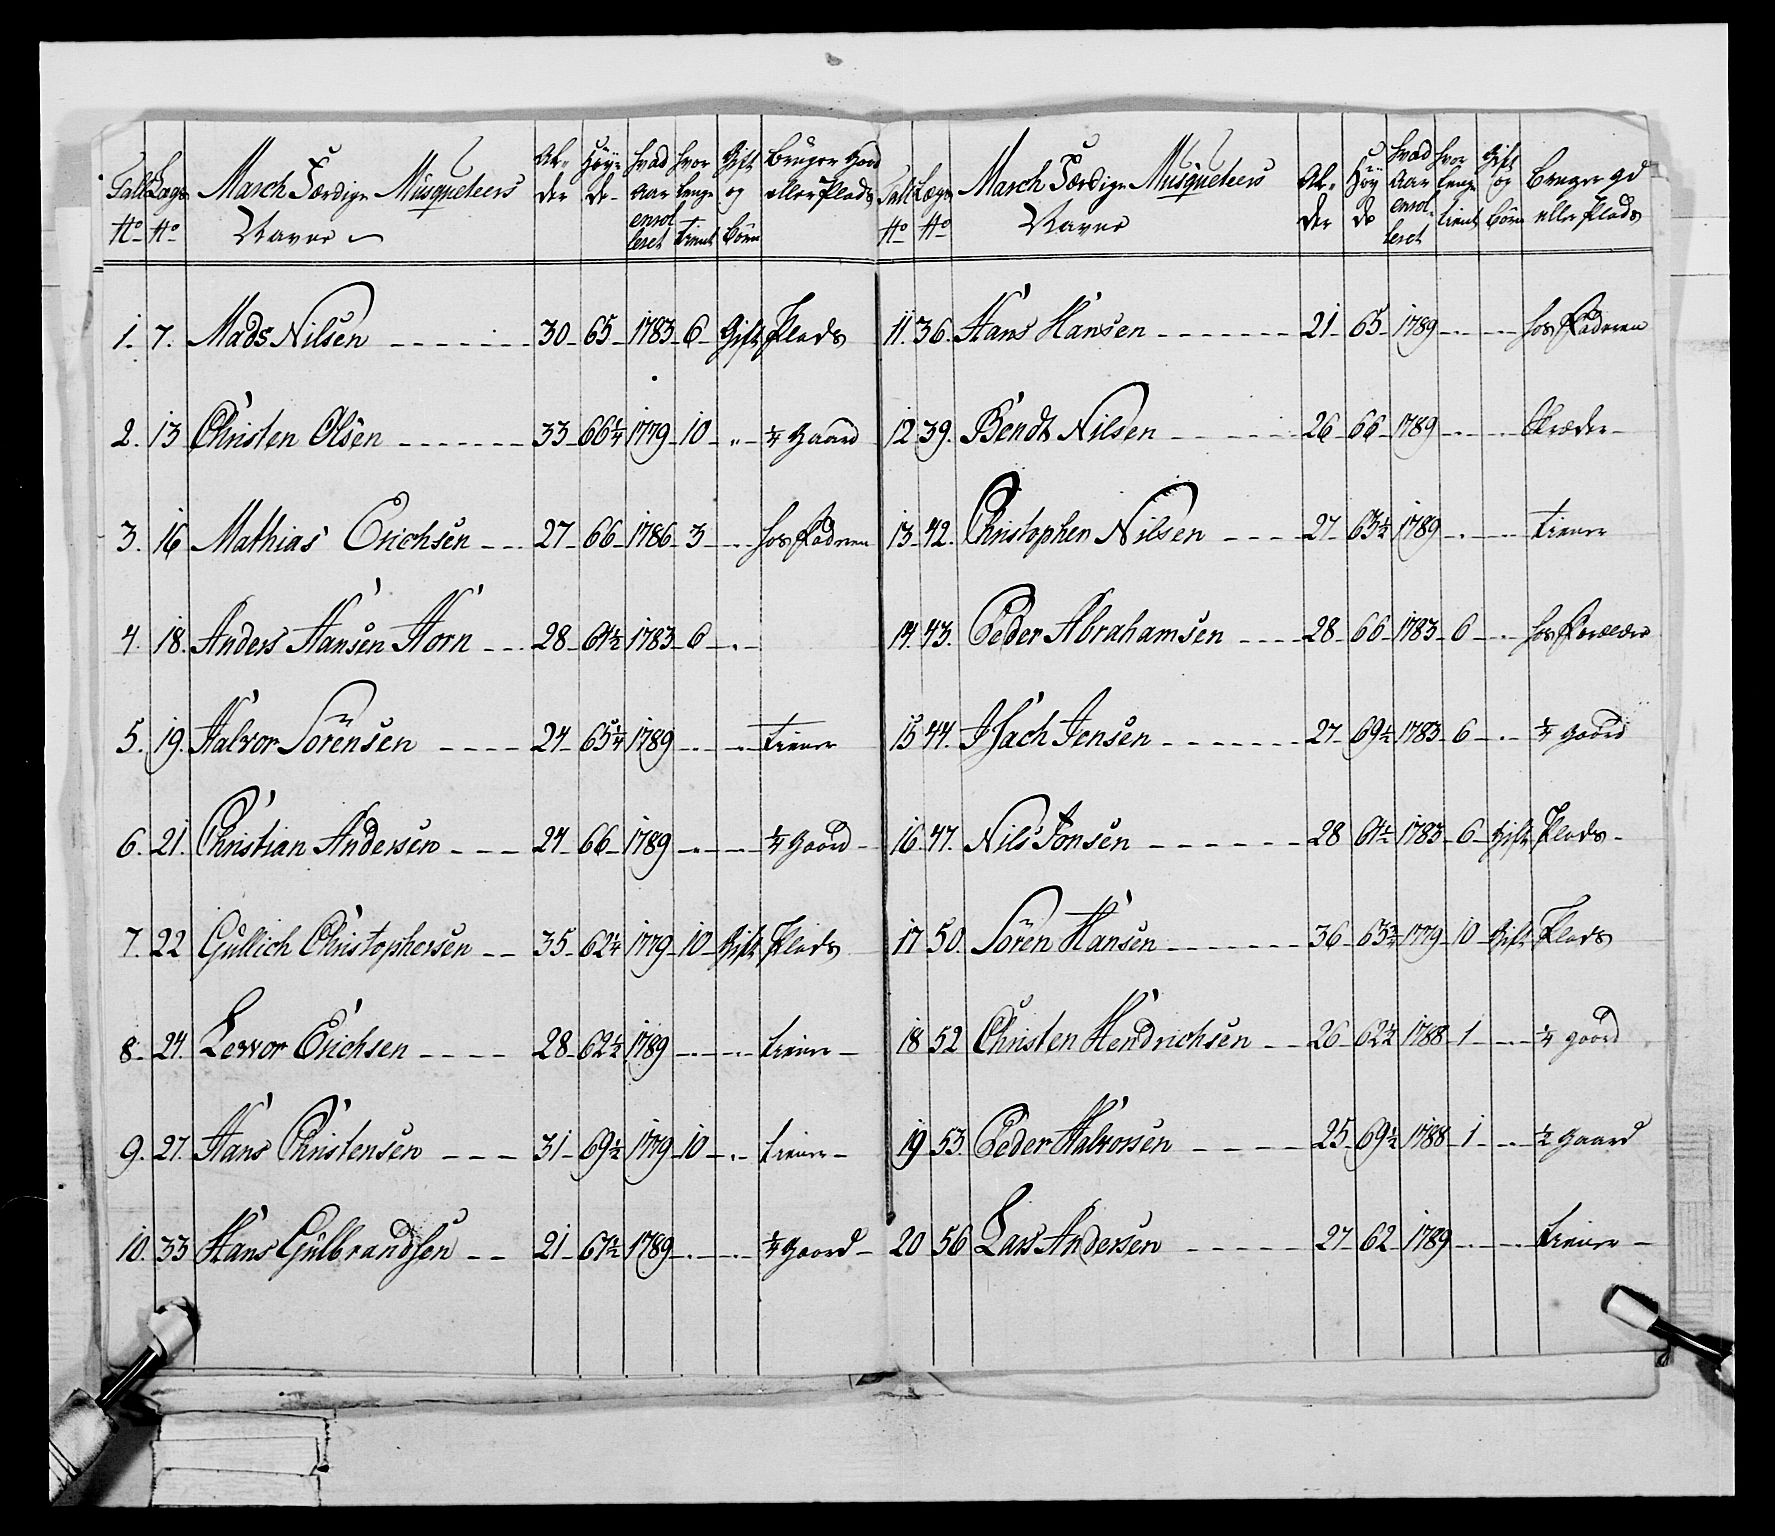 Tall Lægs March Færdige Musqueteers Al- Høy- hvad hvor Gift Bruger Gaard
No No Navne der de aar længe og eller Plads
enrol- tient Børn
leret
1. 7. Mads Nilsen 30 65 1783 6 Gift Plads
2. 13 Christen Olsen 33 66 1/4 1779 10 „ 1/4 Gaard
3. 16 Mathias Erichsen 27 66 1786 3 hos Faderen
4. 18. Anders Hansen Horn 28 61 1/2 1783 6
5. 19. Halvor Sörensen 24 65 1/4 1789 tiener
6. 21. Christian Andersen 24 66 1789 1/4 Gaard
7. 22 Gullich Christophersen 35 62 1/4 1779 10 Gift Plads
8. 24. Levvor Erichsen 28 62 1/2 1789 tiener
9. 27. Hans Christensen 31 69 1/2 1779 10 tiener
10. 33 Hans Gulbrandsen 21 67 1/2 1789 1/4 Gaard
Tall Lægs March Færdige Musqueteers Al- Høy hvad hvor Gift Bruger gd
No No Navne der de Aar længe og eller Plads
enrol- tient Børn
leret
11. 36. Hans Hansen 21 65 1789 hos Faderen
12 39. Bendt Nilsen 26 66 1789 Skræder
13 42. Christopher Nilsen 27 63 1/2 1789 tiener
14. 43. Peder Abrahamsen 28 66 1783 6 hos Forældre
15 44. Isach Jensen 27 69 1/2 1783 6 1/4 gaard
16. 47. Nils Jonsen 28 61 1/2 1783 6 Gift Plads
17 50. Sören Hansen 36 63 3/4 1779 10 Gift Plads
18 52 Christen Hendrichsen 26 62 1/2 1788 1 1/4 gaard
19 53. Peder Halvorsen 25 69 1/2 1788 1 1/2 Gaard
20 56 Lars Andersen 27 62 1789 tiener